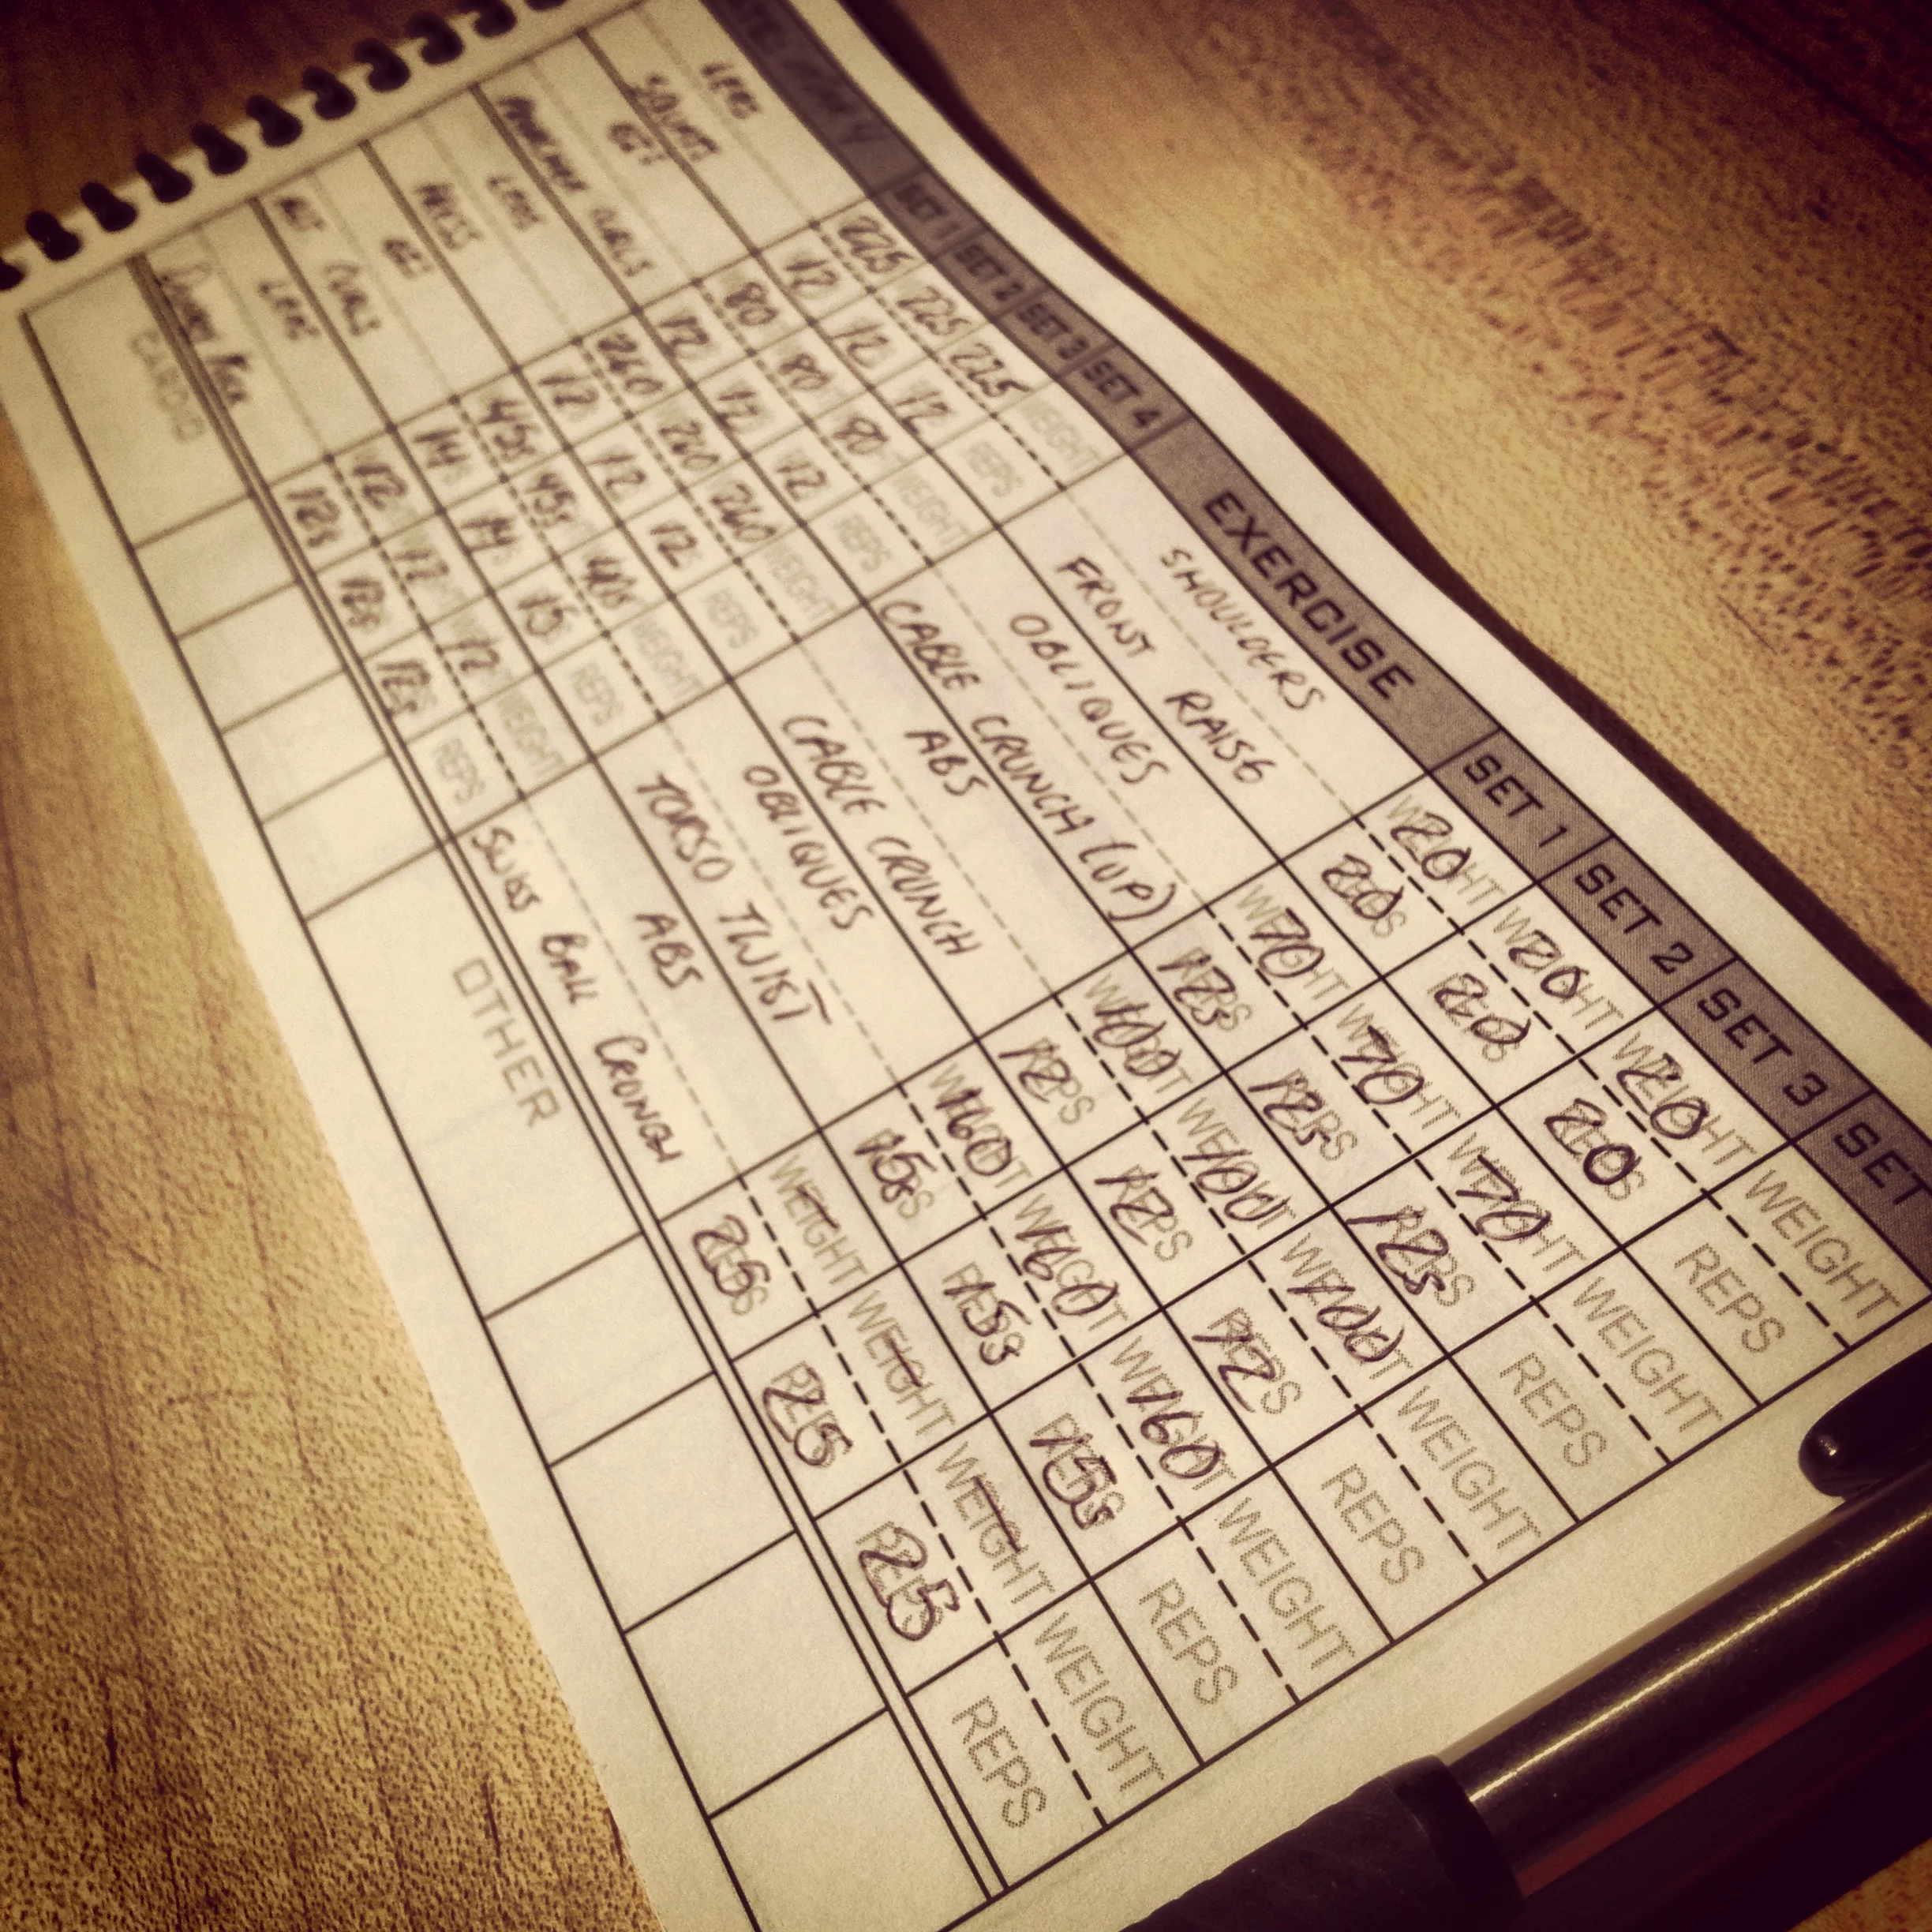 SET 1 SET 2 SET 3 SET 4 EXERCISE SET 1 SET 2 SET 3 SET
LEGS 225 225 225 WEIGHT SHOULDERS 20 20 20 WEIGHT
SQUATS 12 12 12 REPS FRONT RAISE 20 20 20 REPS
80 80 80 WEIGHT OBLIQUES 70 70 70 WEIGHT
CURLS 12 12 12 REPS CABLE CRUNCH (UP) 12s 12s 12s REPS
LEGS 260 260 260 WEIGHT ABS 100 100 100 WEIGHT
PRESS 12 12 12 REPS CABLE CRUNCH 12 12 12 REPS
45s 45s WEIGHT OBLIQUES 160 160 160 WEIGHT
CURLS 14 14 15 REPS TORSO TWIST 15s 15s 15s REPS
LEGS 12 12 WEIGHT ABS WEIGHT WEIGHT WEIGHT WEIGHT
12s 12s 12s REPS SWISS BALL CRUNCH 25 25 25 REPS
CARDIO OTHER